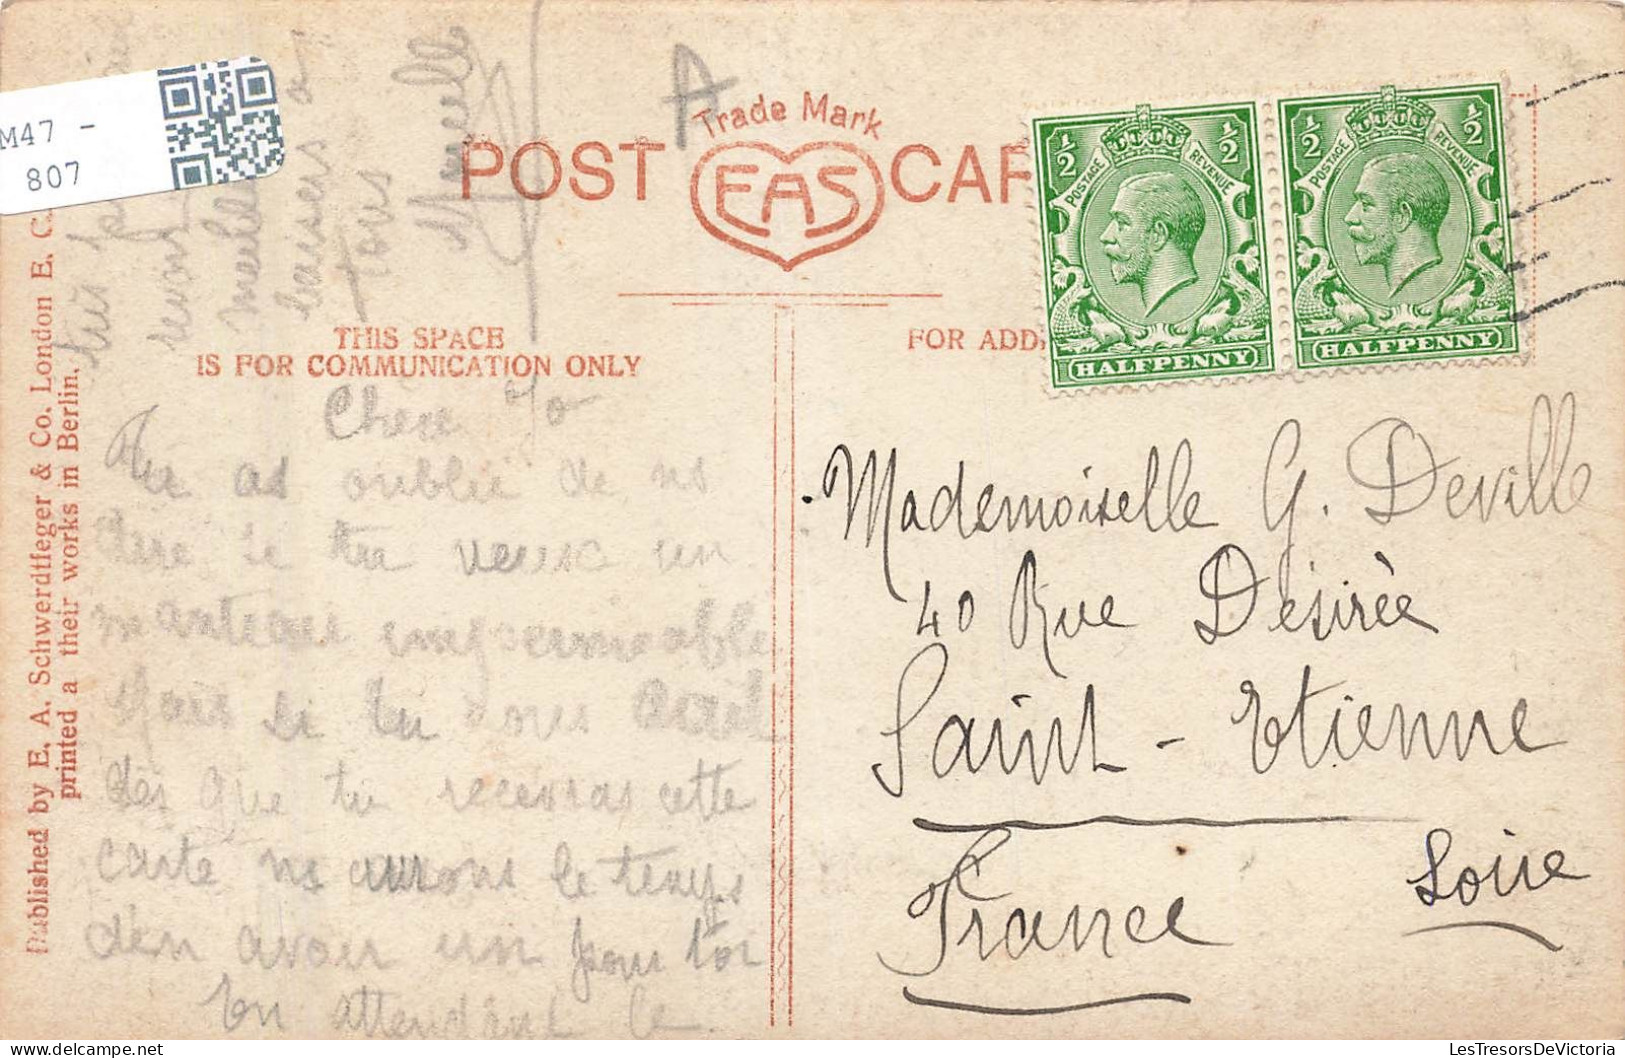 M47 -
807
A
Trade Mark
POST CAR
EAS
THIS SPACE
IS FOR COMMUNICATION ONLY
FOR ADD
Published by E. A. Schwerdtfeger & Co. London E. C.
printed a their works in Berlin.
½ ½
POSTAGE REVENUE
HALFPENNY
½ ½
POSTAGE REVENUE
HALFPENNY
Chère Yo
Tu as oublié de ns
dire si tu veux un
manteau imperméable
Mais si tu nous écrit
dès que tu recevras cette
carte ns aurons le temps
d'en avoir un pour toi
En attendant le
meill
baisers à
tous
Marcelle
Mademoiselle G. Deville
40 Rue Désirée
Saint-Etienne
Loire
France
LesTresorsDeVictoria